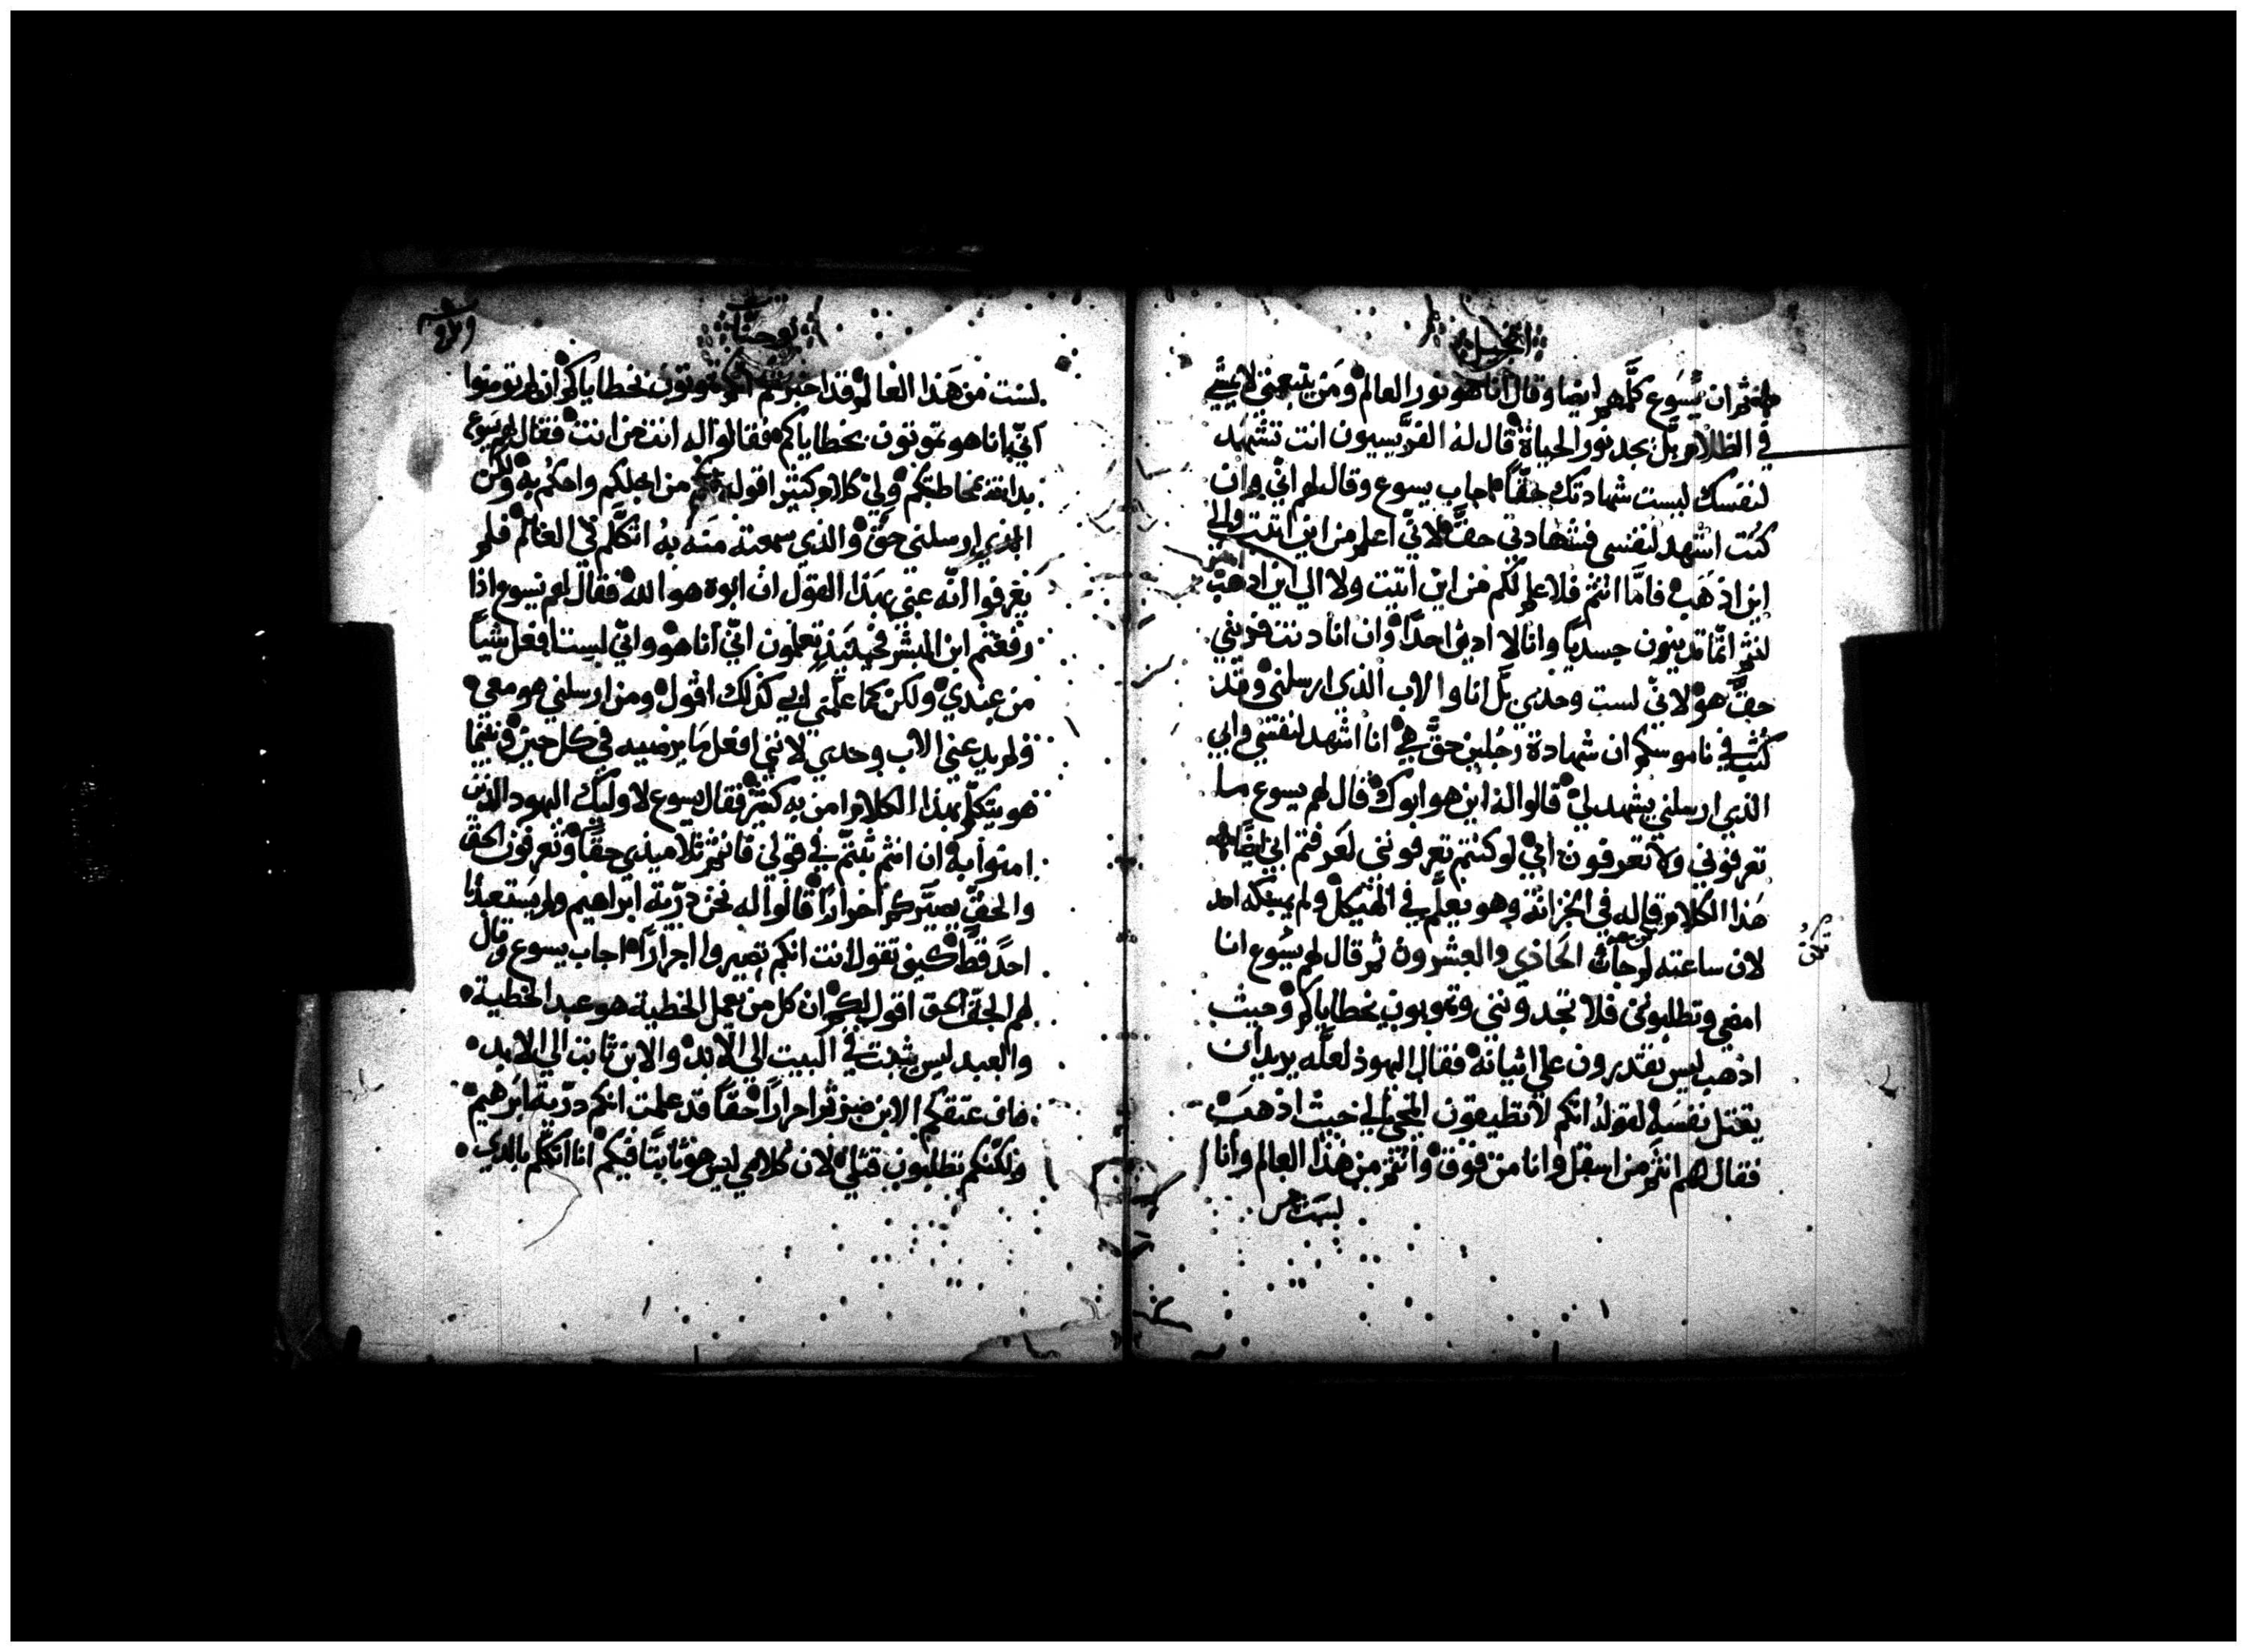 انجيل
ثم ان يسوع كلّمهم ايضا وقال انا هو نور العالم ومن يتبعني لا يمشي
في الظلام بل يجد نور الحياة قال له الفرّيسيون انت تشهد
لنفسك ليست شهادتك حقّاً اجاب يسوع وقال لهم انّي وان
كنت اشهد لنفسي فشهادتي حقّ لانّي اعلم من اين اتيت والى
اين اذهب فامّا انتم فلا علم لكم من اين اتيت ولا الي اين اذهب
انتم انّما تدينون جسديّا وانا لا ادين احدًا وان انا دنت فديني
حقّ هو لانّي لست وحدي بل انا والاب الذي ارسلني وقد
كتب في ناموسكم ان شهادة رجلين حقّ هي انا اشهد لنفسي وابي
الذي ارسلني يشهد لي قالوا له اين هو ابوك قال لهم يسوع ما
تعرفوني ولا تعرفون ابي لو كنتم تعرفونني لعرفتم ابي ايضًا
هذا الكلام قاله في الخزانة وهو يعلّم في الهيكل ولم يمسكه احد
لان ساعته لم جاث الحادي والعشرون ثم قال لهم يسوع انا
امضي وتطلبوني فلا تجدونني وتموتون بخطاياكم وحيث
اذهب ليس تقدرون علي اتيانه فقال اليهود لعلّه يريد ان
يقتل نفسه لقوله انكم لا تطيقون المجي الي حيث اذهب
فقال لهم انتم من اسفل وانا من فوق وانتم من هذا العالم وانا
لست من
يوحنا
لست من هذا العالم قد اخبرتكم انكم تموتون بخطاياكم ان لم تومنوا
انّي انا هو تموتون بخطاياكم فقالوا له انت من انت فقال لهم يسوع
بدات مخاطبتكم ولي كلام كثير اقوله من اجلكم واحكم به ولكن
الذي ارسلني حق والذي سمعته منه به اتكلّم في العالم فلم
يعرفوا انّه عني بهذا القول ان ابوه هو الله فقال لهم يسوع اذا
رفعتم ابن البشر فحينيذ تعلمون انّي انا هو وانّي لست افعل شياً
من عندي ولكن كما علّمني ابي كذلك اقول ومن ارسلني هو معي
ولم يدعني الاب وحدي لانني افعل ما يرضيه في كل حين وفيما
هو يتكلّم بهذا الكلام امن به كثير فقال يسوع لاوليك اليهود الذين
امنوا به ان انتم ثبتّم في قولي فانتم تلاميذي حقّاً وتعرفون الحق
والحقّ يصيّركم احرارًا قالوا له نحن ذرّية ابراهيم ولم يستعبدنا
احد قط كيف تقول انت انكم تصيروا احرارًا اجاب يسوع وقال
لهم الحق الحق اقول لكم ان كل من يعمل الخطية هو عبد الخطية
والعبد ليس يثبت في البيت الي الابد والابن ثابت الي الابد
فان عتقكم الابن صرتم احرارًا حقًا قد علمت انكم ذرّية ابرهيم
ولكنكم تطلبون قتلي لان كلامي ليس هو ثابتًا فيكم انا اتكلّم بالذي